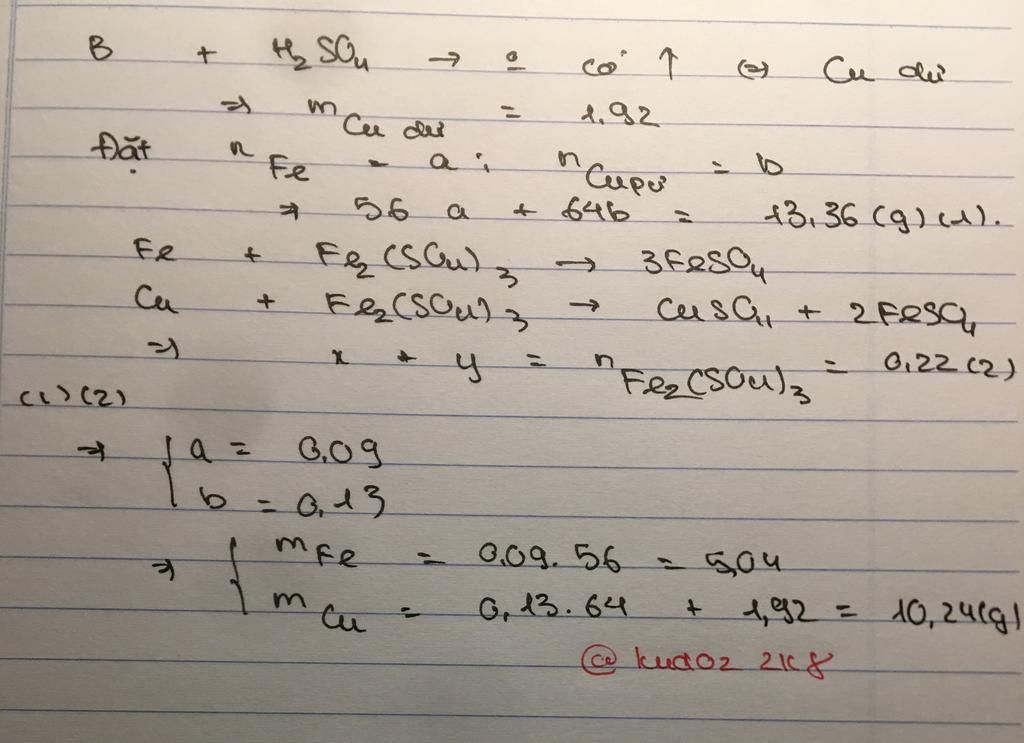 B + H₂SO₄ → o có ↑ ⇔ Cu dư
⇒ m Cu dư = 1,92
Đặt n Fe = a ; n Cu pứ = b
⇒ 56 a + 64b = 13,36 (g) (1).
Fe + Fe₂(SO₄)₃ → 3FeSO₄
Cu + Fe₂(SO₄)₃ → CuSO₄ + 2FeSO₄
⇒ x + y = n Fe₂(SO₄)₃ = 0,22 (2)
(1) (2)
⇒ { a = 0,09
b = 0,13
⇒ { m Fe = 0,09. 56 = 5,04
m Cu = 0,13. 64 + 1,92 = 10,24(g)
@ kudoz 2k8